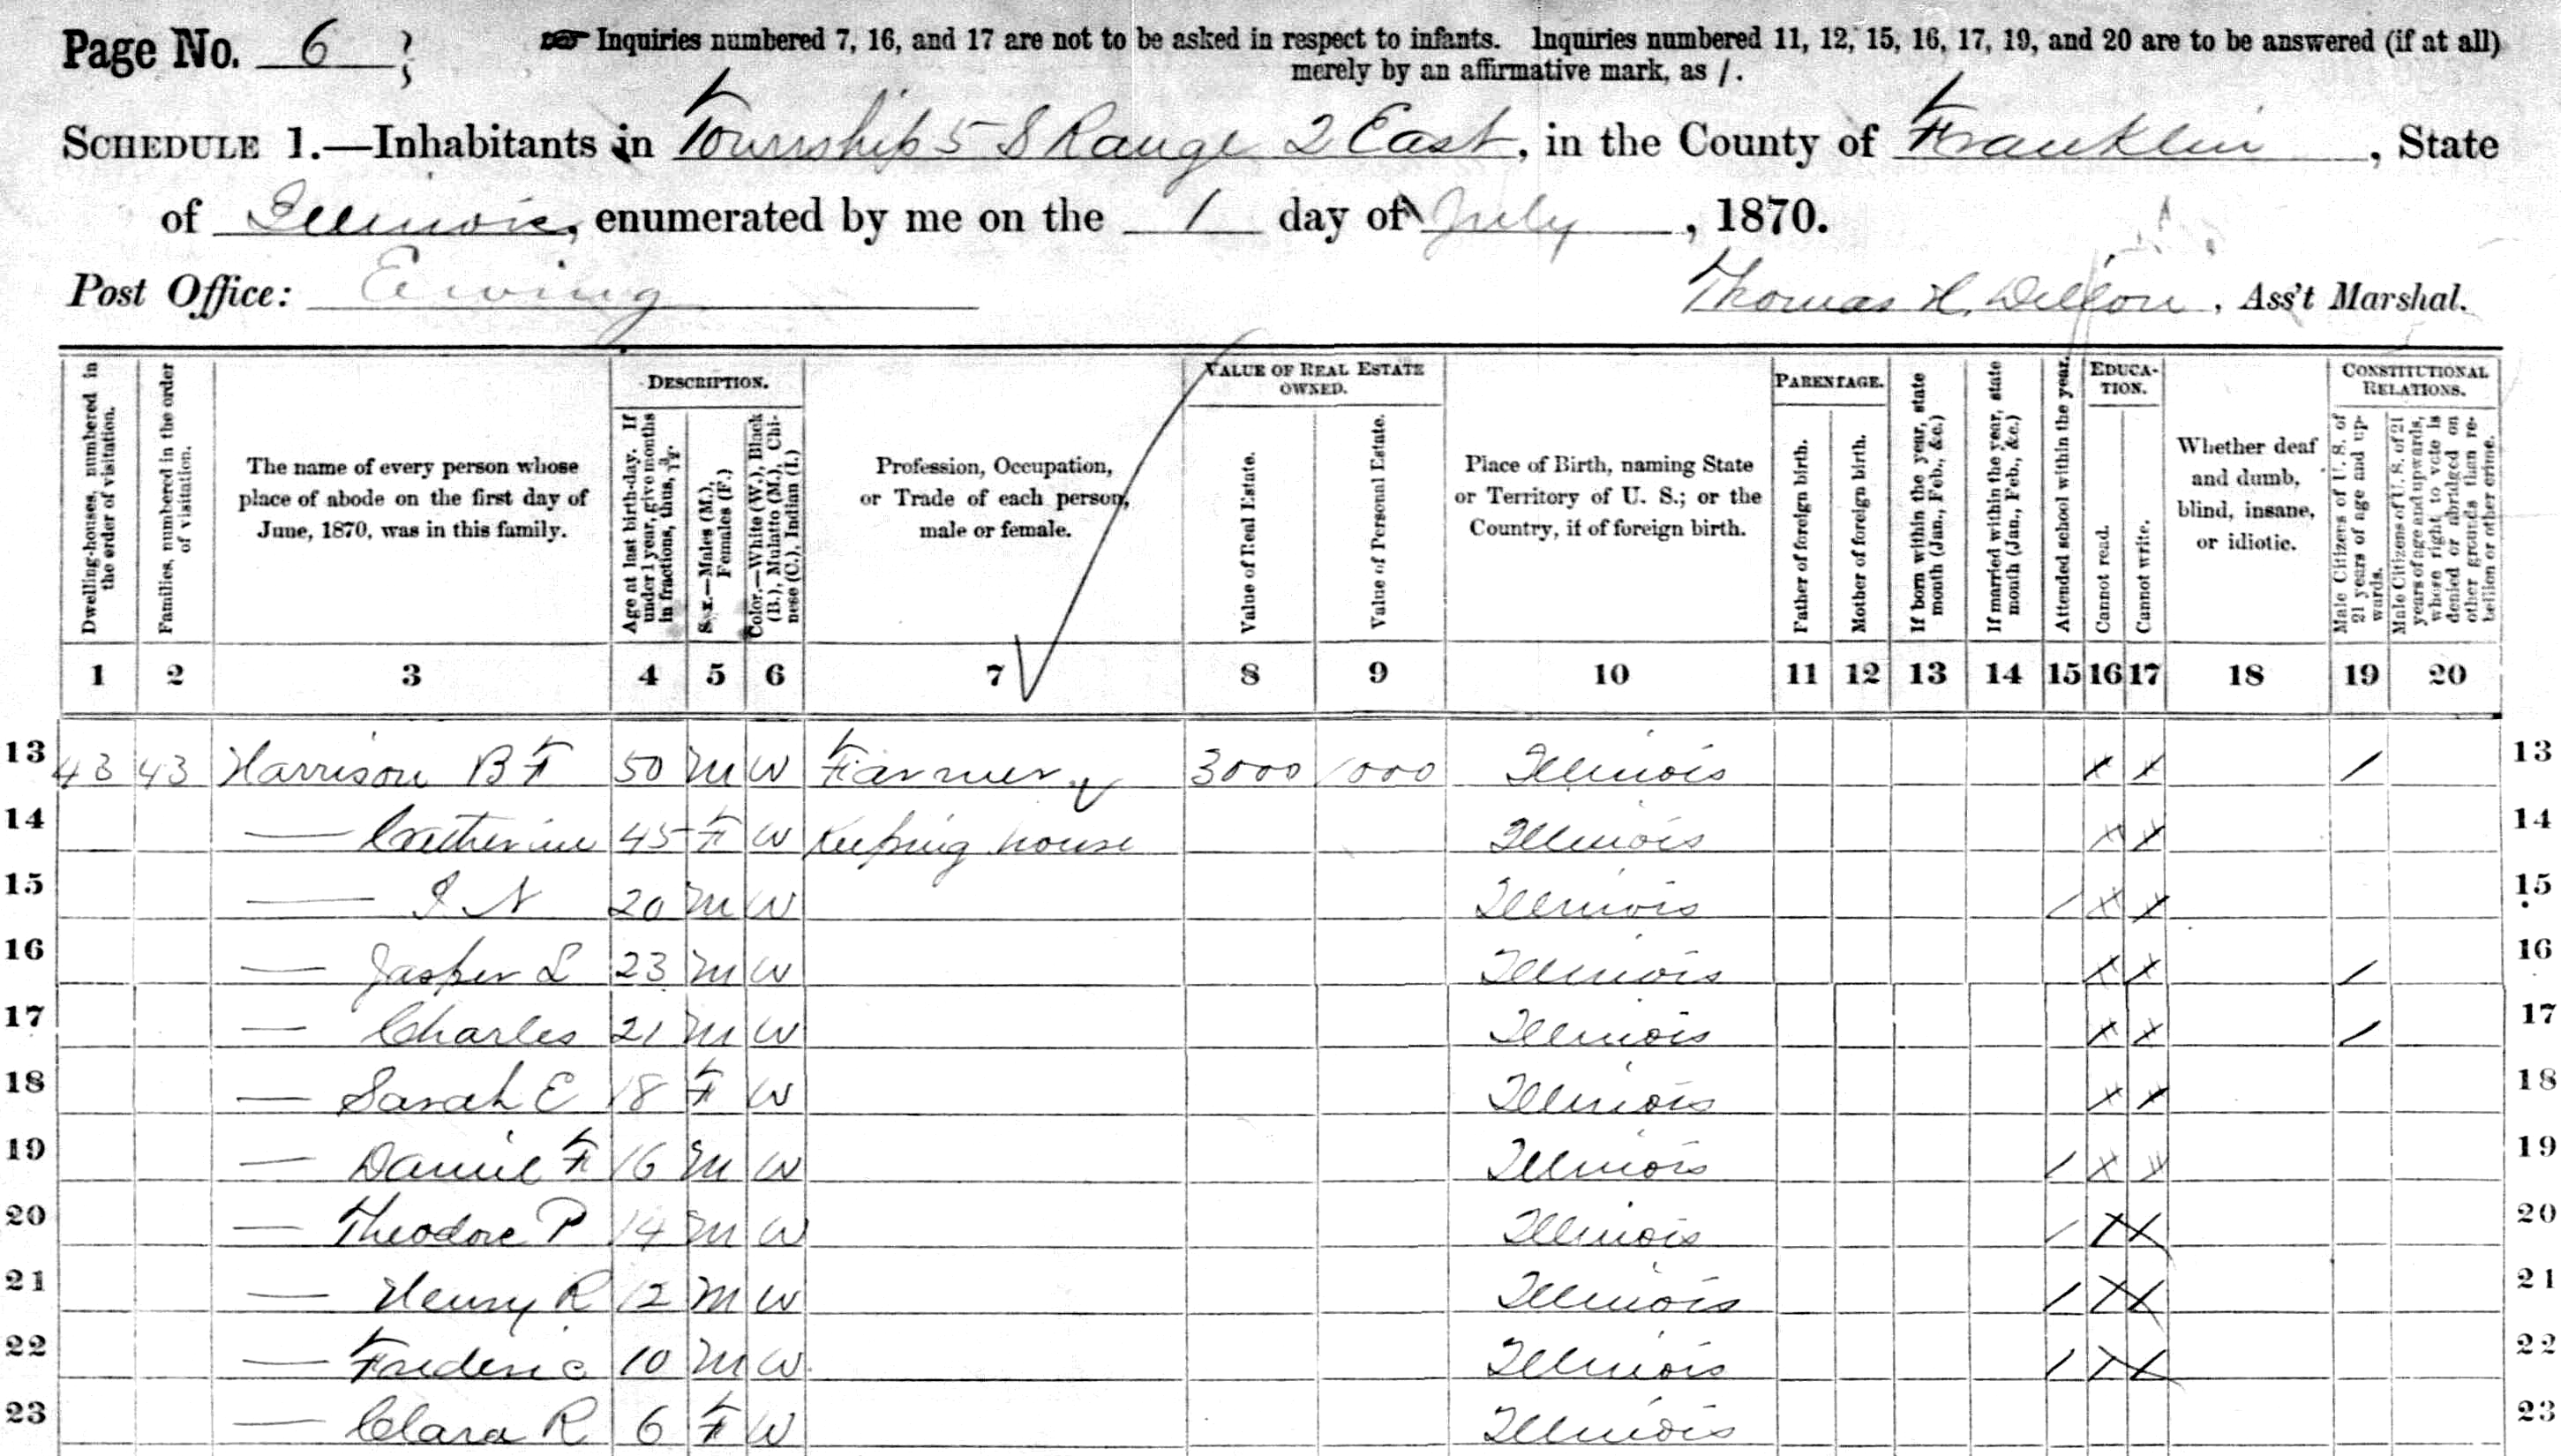 Page No. 6
☞ Inquiries numbered 7, 16, and 17 are not to be asked in respect to infants. Inquiries numbered 11, 12, 15, 16, 17, 19, and 20 are to be answered (if at all)
merely by an affirmative mark, as /.
SCHEDULE 1.—Inhabitants in Township 5 S Range 2 East, in the County of Franklin, State
of Illinois, enumerated by me on the 1 day of July, 1870.
Post Office: Ewing
Thomas H. Dillon, Ass't Marshal.
Dwelling-houses, numbered in the order of visitation.
Families, numbered in the order of visitation.
The name of every person whose place of abode on the first day of June, 1870, was in this family.
DESCRIPTION.
Age at last birth-day. If under 1 year, give months in fractions, thus, 3/12.
Sex.—Males (M.), Females (F.)
Color.—White (W.), Black (B.), Mulatto (M.), Chinese (C.), Indian (I.)
Profession, Occupation, or Trade of each person, male or female.
VALUE OF REAL ESTATE OWNED.
Value of Real Estate.
Value of Personal Estate.
Place of Birth, naming State or Territory of U. S.; or the Country, if of foreign birth.
PARENTAGE.
Father of foreign birth.
Mother of foreign birth.
If born within the year, state month (Jan., Feb., &c.)
If married within the year, state month (Jan., Feb., &c.)
Attended school within the year.
EDUCATION.
Cannot read.
Cannot write.
Whether deaf and dumb, blind, insane, or idiotic.
CONSTITUTIONAL RELATIONS.
Male Citizens of U. S. of 21 years of age and upwards.
Male Citizens of U. S. of 21 years of age and upwards, whose right to vote is denied or abridged on other grounds than rebellion or other crime.
1 2 3 4 5 6 7 8 9 10 11 12 13 14 15 16 17 18 19 20
13 43 43 Harrison B F 50 M W Farmer 3000 1000 Illinois X X / 13
14 — Catherine 45 F W Keeping house Illinois X X 14
15 — I N 20 M W Illinois / X X 15
16 — Jasper L 23 M W Illinois X X / 16
17 — Charles 21 M W Illinois X X / 17
18 — Sarah E 18 F W Illinois X X 18
19 — Daniel F 16 M W Illinois / X X 19
20 — Theodore P 14 M W Illinois / X X 20
21 — Henry R 12 M W Illinois / X X 21
22 — Frederic 10 M W Illinois / X X 22
23 — Clara R 6 F W Illinois 23